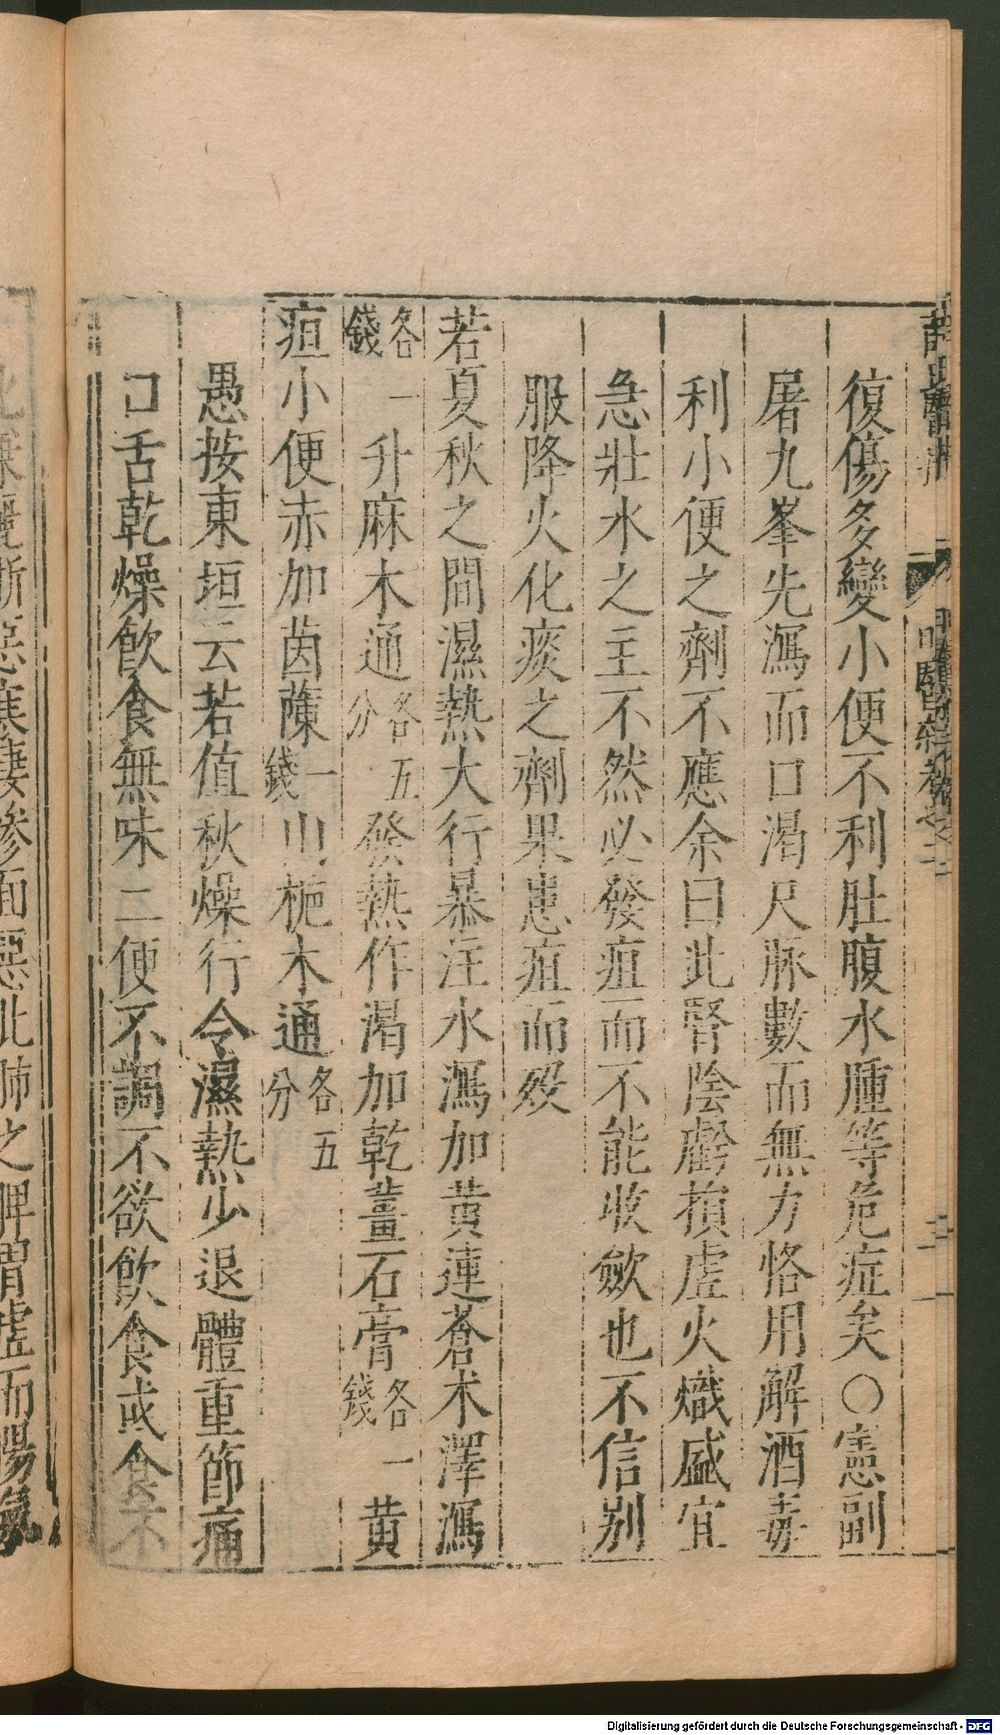 復傷多變小便不利肚腹水腫等危症矣○憲副
屠九峯先瀉而口渴尺脉數而無力恪用解酒毒
利小便之劑不應余曰此腎陰虧損虛火熾盛宜
急壯水之主不然必發疽而不能收斂也不信别
服降火化痰之劑果患疽而歿
若夏秋之間濕熱大行暴注水瀉加黄連蒼术澤瀉
各一錢升麻木通各五分發熱作渴加乾薑石膏各一錢黄
疸小便赤加茵蔯一錢山梔木通各五分
愚按東垣云若值秋燥行令濕熱少退體重節痛
口舌乾燥飲食無味二便不調不欲飲食或食不
Digitalisierung gefördert durch die Deutsche Forschungsgemeinschaft - DFG